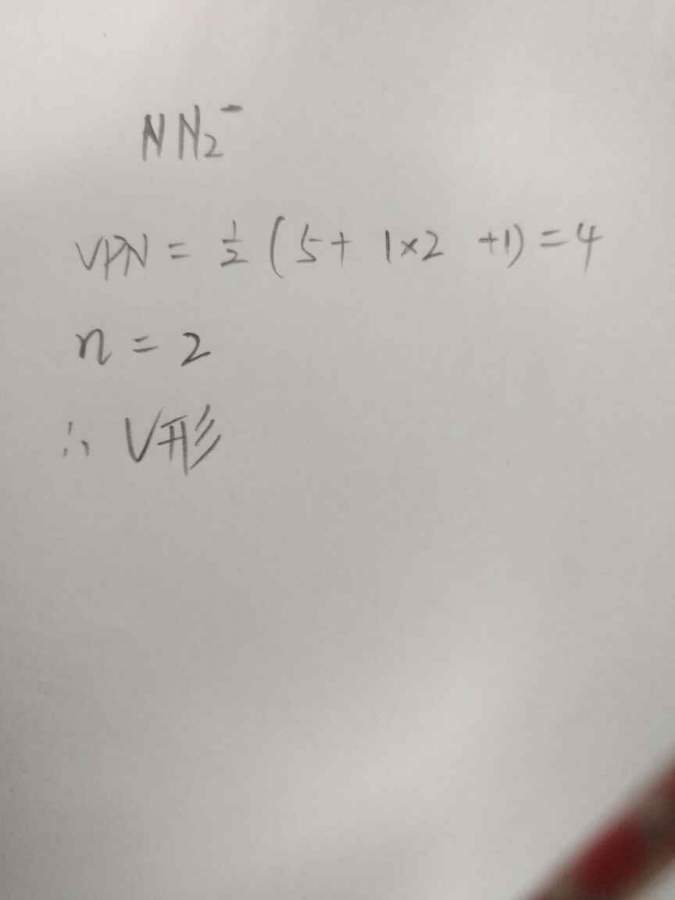 NN₂⁻
VPN = ½ (5 + 1×2 +1) = 4
n = 2
∴ V形